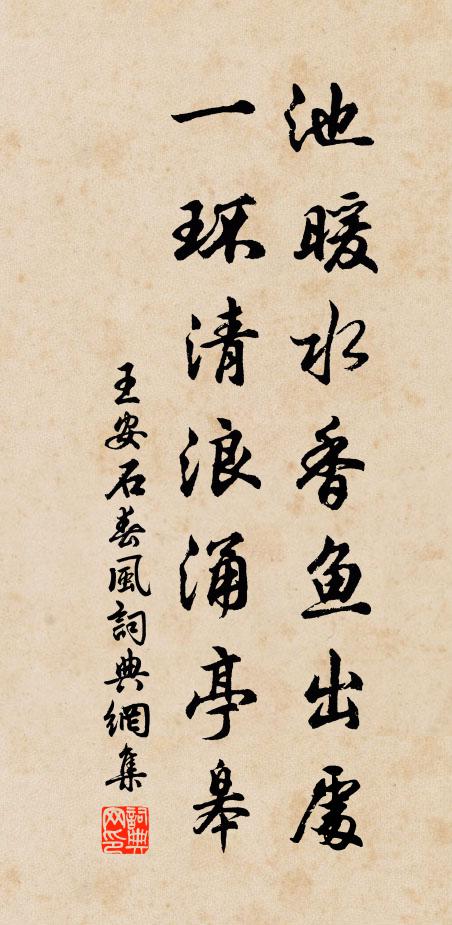 池暖水香鱼出處
一环清浪涌亭皋
王安石春風詞典網集
詞典网印